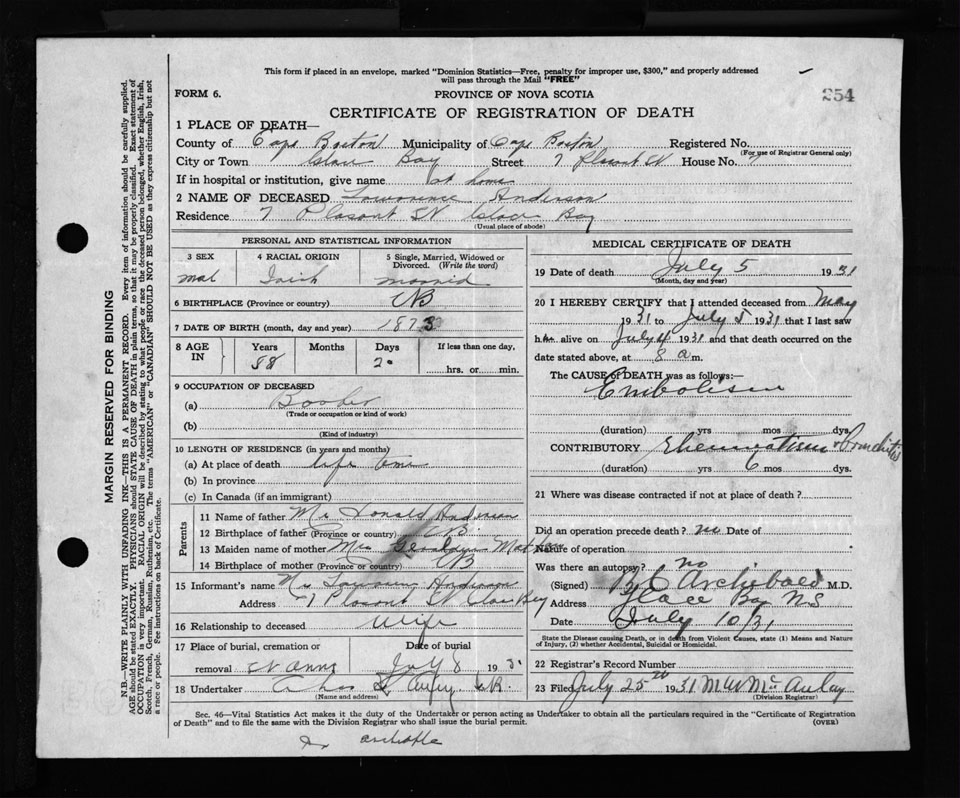 This form if placed in an envelope, marked "Dominion Statistics—Free, penalty for improper use, $300," and properly addressed
will pass through the Mail "FREE"
FORM 6.
PROVINCE OF NOVA SCOTIA
254
CERTIFICATE OF REGISTRATION OF DEATH
1 PLACE OF DEATH—
County of Cape Breton Municipality of Cape Breton Registered No.
(For use of Registrar General only)
City or Town Glace Bay Street 7 Plasant St House No.
If in hospital or institution, give name at home
2 NAME OF DECEASED Lawrence Anderson
Residence 7 Plasant St Glace Bay
(Usual place of abode)
PERSONAL AND STATISTICAL INFORMATION
3 SEX
4 RACIAL ORIGIN
5 Single, Married, Widowed or Divorced. (Write the word)
mal Irish married
6 BIRTHPLACE (Province or country) CB
7 DATE OF BIRTH (month, day and year) 1873
8 AGE IN
Years Months Days If less than one day,
58 20 hrs. or min.
9 OCCUPATION OF DECEASED
(a)
(Trade or occupation or kind of work)
(b)
(Kind of industry)
10 LENGTH OF RESIDENCE (in years and months)
(a) At place of death life time
(b) In province
(c) In Canada (if an immigrant)
Parents
11 Name of father Mr Donald Anderson
12 Birthplace of father (Province or country) CB
13 Maiden name of mother Mrs
14 Birthplace of mother (Province or country) CB
15 Informant's name Anderson
Address 7 Plasant St Glace Bay
16 Relationship to deceased Wife
17 Place of burial, cremation or removal St Anns
Date of burial July 8 1931
18 Undertaker
(Name and address)
MEDICAL CERTIFICATE OF DEATH
19 Date of death July 5 1931
(Month, day and year)
20 I HEREBY CERTIFY that I attended deceased from May
1931 to July 5 1931 that I last saw
him alive on July 4 1931 and that death occurred on the
date stated above, at 8 a m.
The CAUSE of DEATH was as follows:—
Embolism
(duration) yrs mos dys.
CONTRIBUTORY Rheumatism
(duration) yrs 6 mos dys.
21 Where was disease contracted if not at place of death?
Did an operation precede death? no Date of
Nature of operation
Was there an autopsy? no
(Signed) Archibald M.D.
Address Glace Bay NS
Date July 10/31
State the Disease causing Death, or in death from Violent Causes, state (1) Means and Nature
of Injury, (2) whether Accidental, Suicidal or Homicidal.
22 Registrar's Record Number
23 Filed July 25th 1931 McAulay
(Division Registrar)
Sec. 46—Vital Statistics Act makes it the duty of the Undertaker or person acting as Undertaker to obtain all the particulars required in the "Certificate of Registration
of Death" and to file the same with the Division Registrar who shall issue the burial permit.
(OVER)
MARGIN RESERVED FOR BINDING
N.B.—WRITE PLAINLY WITH UNFADING INK—THIS IS A PERMANENT RECORD. Every item of information should be carefully supplied.
AGE should be stated EXACTLY. PHYSICIANS should STATE CAUSE OF DEATH in plain terms, so that it may be properly classified. Exact statement of
OCCUPATION is very important. RACIAL ORIGIN will be described by stating to what people or race the deceased person belonged, whether English, Irish,
Scotch, French, German, Russian, Ruthenian, etc. The terms "AMERICAN" or "CANADIAN" SHOULD NOT BE USED as they express citizenship but not
a race or people. Fee instructions on back of Certificate.